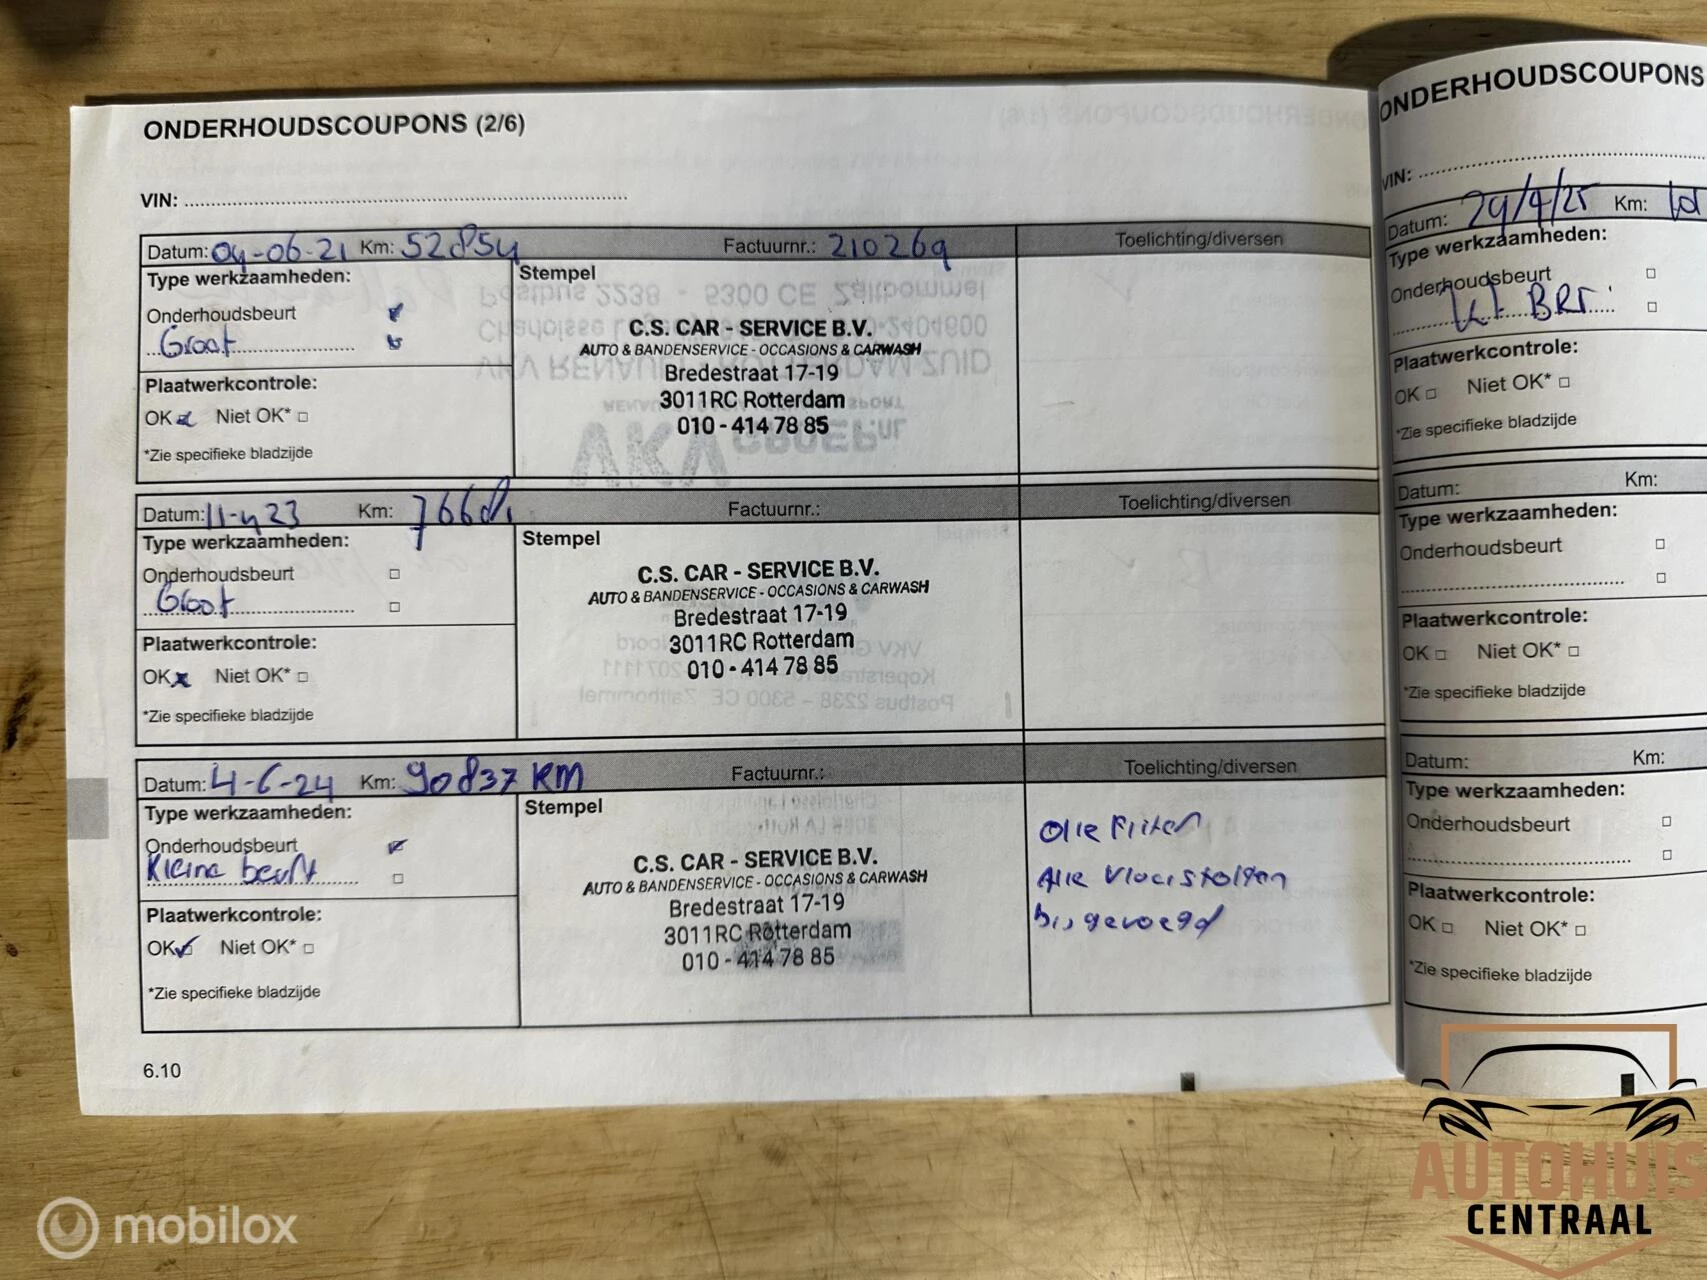 ONDERHOUDSCOUPONS (2/6)
VIN:
Datum: 04-06-21 Km: 52854 Factuurnr.: 210269 Toelichting/diversen
Type werkzaamheden:
Onderhoudsbeurt
Groot
Plaatwerkcontrole:
OK Niet OK*
*Zie specifieke bladzijde
Stempel
C.S. CAR - SERVICE B.V.
AUTO & BANDENSERVICE - OCCASIONS & CARWASH
Bredestraat 17-19
3011RC Rotterdam
010 - 414 78 85
Datum: 11-4 23 Km: Factuurnr.: Toelichting/diversen
Type werkzaamheden:
Onderhoudsbeurt
Groot
Plaatwerkcontrole:
OK Niet OK*
*Zie specifieke bladzijde
Stempel
C.S. CAR - SERVICE B.V.
AUTO & BANDENSERVICE - OCCASIONS & CARWASH
Bredestraat 17-19
3011RC Rotterdam
010 - 414 78 85
Datum: 4-6-24 Km: 90837 KM Factuurnr.: Toelichting/diversen
Type werkzaamheden:
Onderhoudsbeurt
Kleine beurt
Plaatwerkcontrole:
OK Niet OK*
*Zie specifieke bladzijde
Stempel
C.S. CAR - SERVICE B.V.
AUTO & BANDENSERVICE - OCCASIONS & CARWASH
Bredestraat 17-19
3011RC Rotterdam
010 - 414 78 85
Olie Filter
Alle Vloeistoffen
bijgevoegd
6.10
ONDERHOUDSCOUPONS
VIN:
Datum: 29/4/25 Km:
Type werkzaamheden:
Onderhoudsbeurt
BRT.
Plaatwerkcontrole:
OK Niet OK*
*Zie specifieke bladzijde
Datum: Km:
Type werkzaamheden:
Onderhoudsbeurt
Plaatwerkcontrole:
OK Niet OK*
*Zie specifieke bladzijde
Datum: Km:
Type werkzaamheden:
Onderhoudsbeurt
Plaatwerkcontrole:
OK Niet OK*
*Zie specifieke bladzijde
AUTOHUIS
CENTRAAL
mobilox